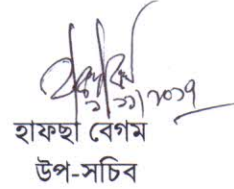 হাফছা বেগম
উপ-সচিব